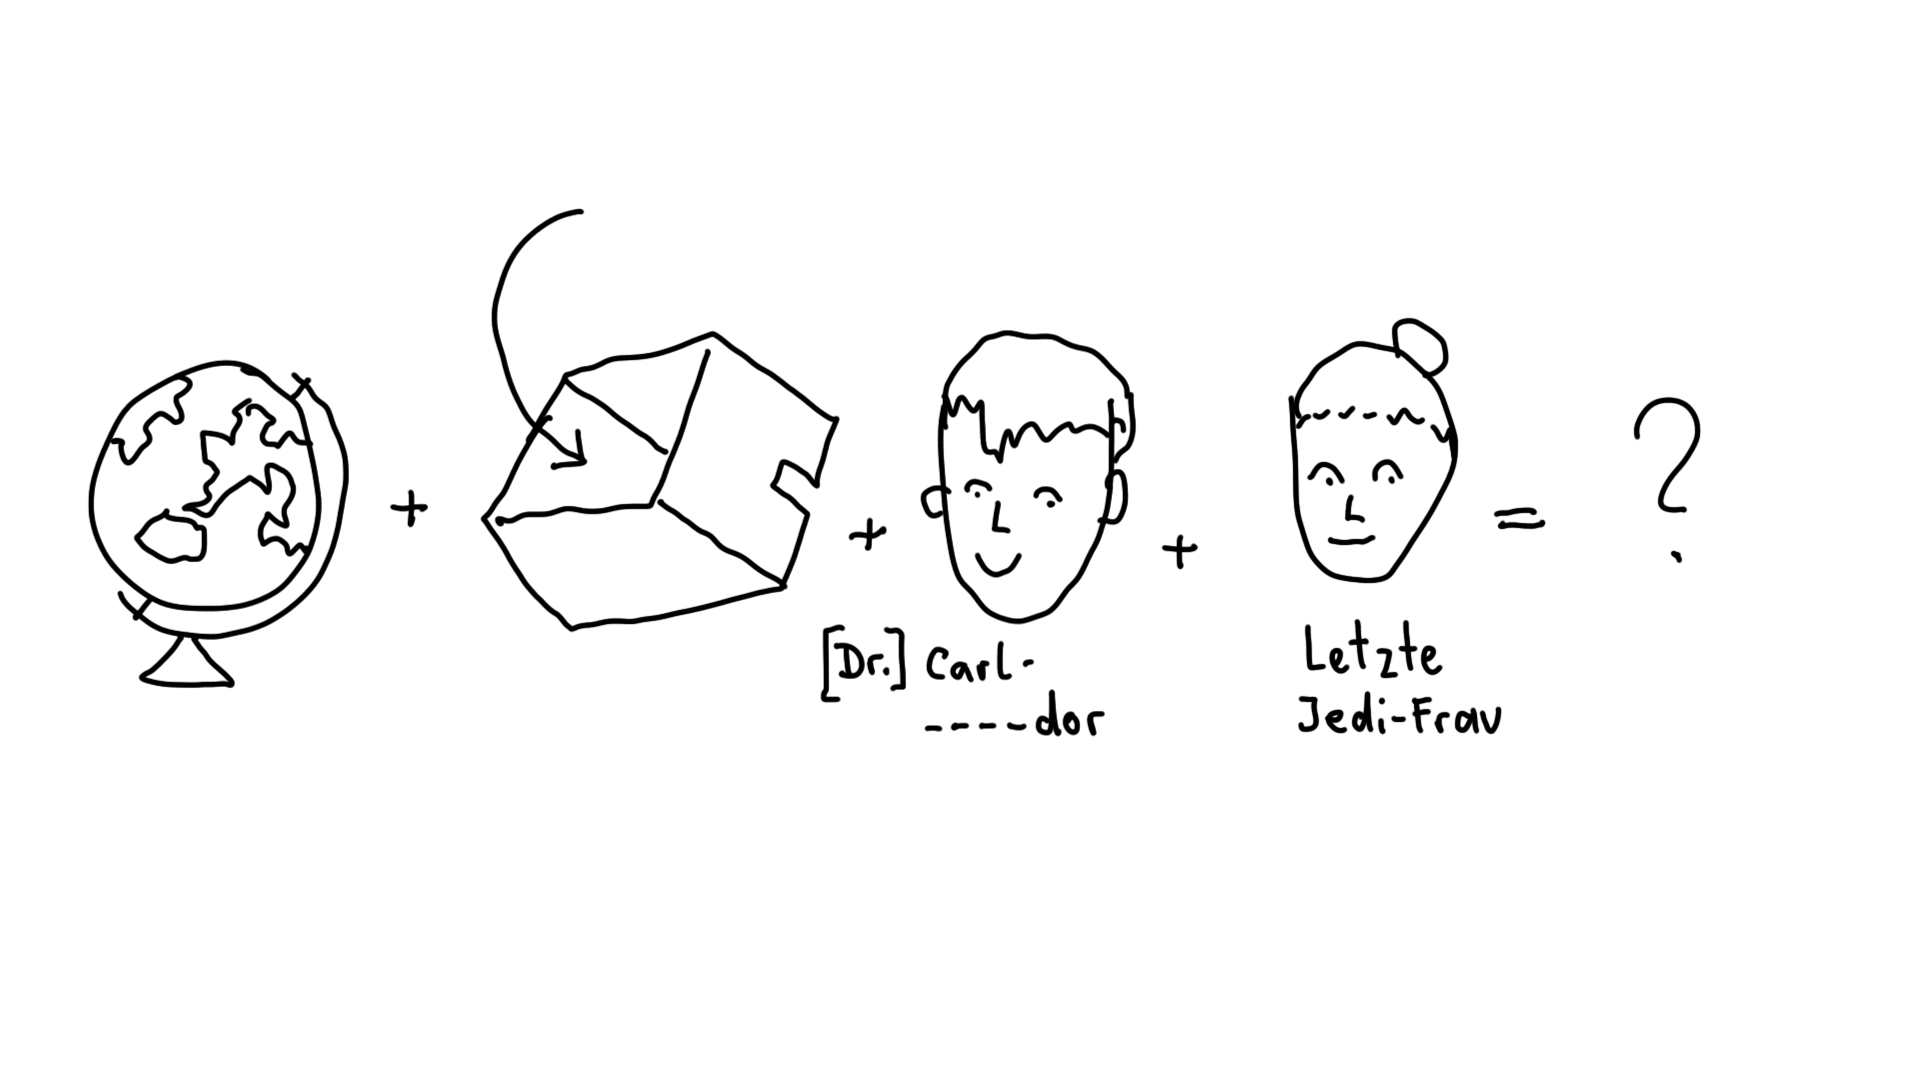 + + + = ?
[Dr.] Carl-
----dor
Letzte
Jedi-Frau